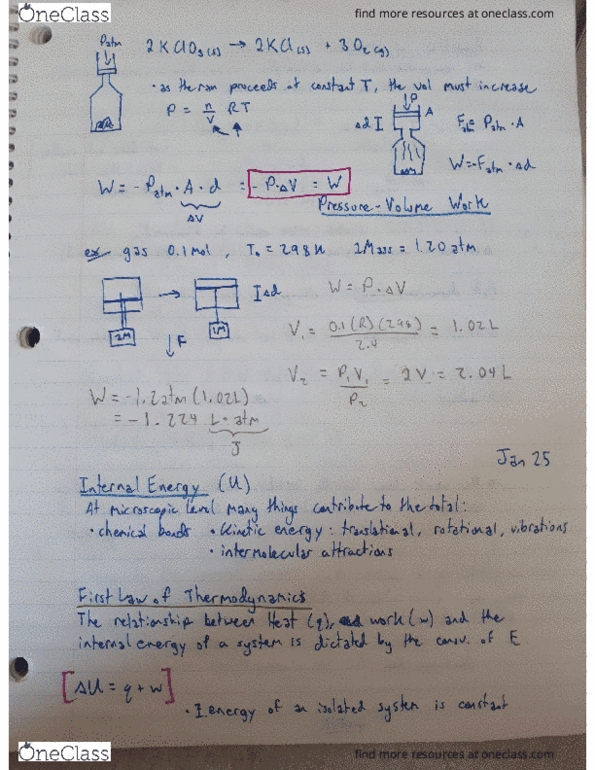 OneClass
find more resources at oneclass.com
Patm
2KClO3(s) → 2KCl(s) + 3O2(g)
• as the rxn proceeds at constant T, the vol must increase
P = n/V RT
P
A
Δd
F = Patm · A
W = -F · Δd
W = -Patm · A · d = -P·ΔV = W
ΔV
Pressure-Volume Work
ex gas 0.1 mol, T = 298K 1Mass = 1.20 atm
2M
1M
Δd
F
W = P·ΔV
V1 = 0.1(R)(298)/2.4 = 1.02L
V2 = P1V1/P2 = 2V = 2.04L
W = -1.2atm(1.02L)
= -1.224 L·atm
J
Jan 25
Internal Energy (U)
At microscopic level many things contribute to the total:
• chemical bonds • Kinetic energy: translational, rotational, vibrations
• intermolecular attractions
First Law of Thermodynamics
The relationship between Heat (q), work (w) and the
internal energy of a system is dictated by the conv. of E
[ΔU = q + w]
• I. energy of an isolated system is constant
OneClass
find more resources at oneclass.com